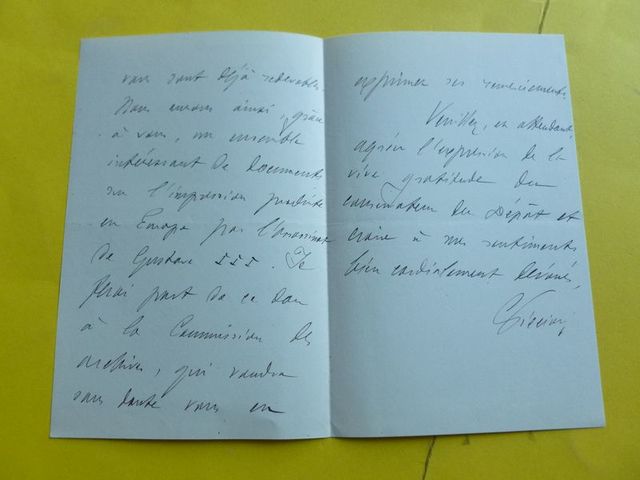 vous sont déjà redevables.
Nous aurons ainsi, grâce
à vous, un ensemble
intéressant de documents
sur l'impression produite
en Europe par l'assassinat
de Gustave III. Je
ferai part de ce don
à la Commission des
archives, qui voudra
sans doute vous en
exprimer ses remerciements.
Veuillez, en attendant,
agréer l'expression de la
vive gratitude du
conservateur du Dépôt et
croire à mes sentiments
bien cordialement dévoués,